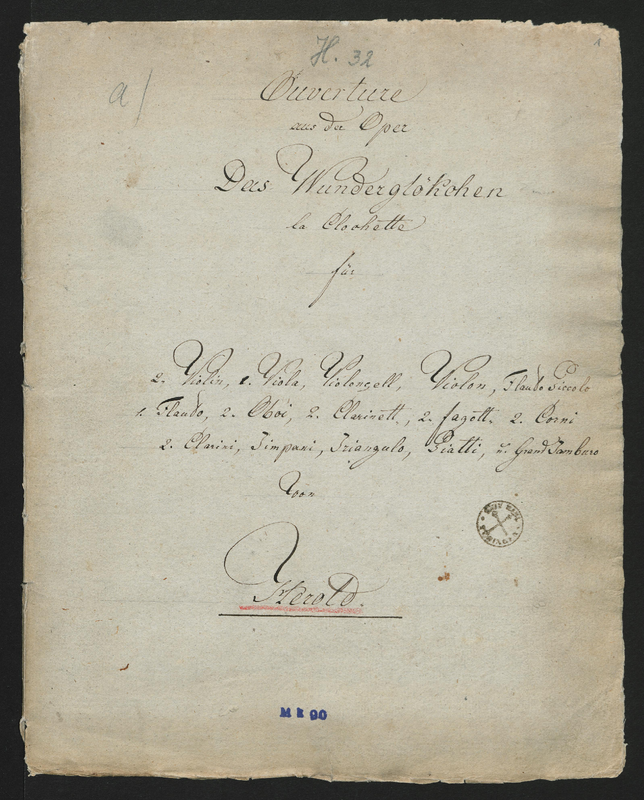 H. 32
1
a)
Ouverture
aus der Oper
Das Wunderglökchen
la Clochette
für
2. Violin, 1. Viola, Violonzell, Violon, Flauto Piccolo
1. Flauto, 2. Oboi, 2. Clarinett, 2. Fagott. 2. Corni
2. Clarini, Timpani, Triangulo, Piatti, u. Grand Tamburo
von
Herold.
M k 90